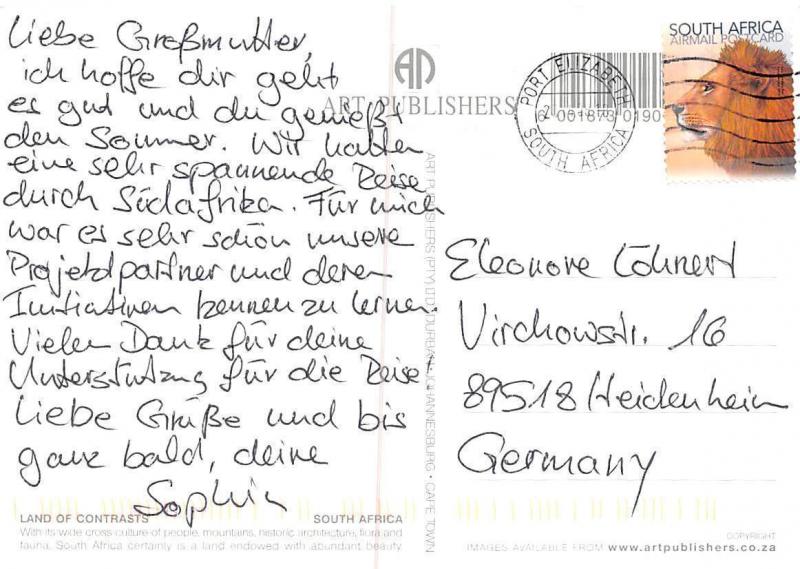 Liebe Großmutter,
ich hoffe dir geht
es gut und du genießt
den Sommer. Wir hatten
eine sehr spannende Reise
durch Südafrika. Für mich
war es sehr schön unsere
Projektpartner und deren
Initiativen kennen zu lernen.
Vielen Dank für deine
Unterstützung für die Reise!
Liebe Grüße und bis
ganz bald, deine
Sophie
LAND OF CONTRASTS SOUTH AFRICA
With its wide cross culture of people, mountains, historic architecture, flora and
fauna, South Africa certainly is a land endowed with abundant beauty.
ART PUBLISHERS
ART PUBLISHERS (PTY) LTD DURBAN JOHANNESBURG • CAPE TOWN
PORT ELIZABETH
SOUTH AFRICA
6 001873 0190
SOUTH AFRICA
AIRMAIL POSTCARD
Eleonore
Virchowstr. 16
89518 Heidenheim
Germany
COPYRIGHT
IMAGES AVAILABLE FROM www.artpublishers.co.za